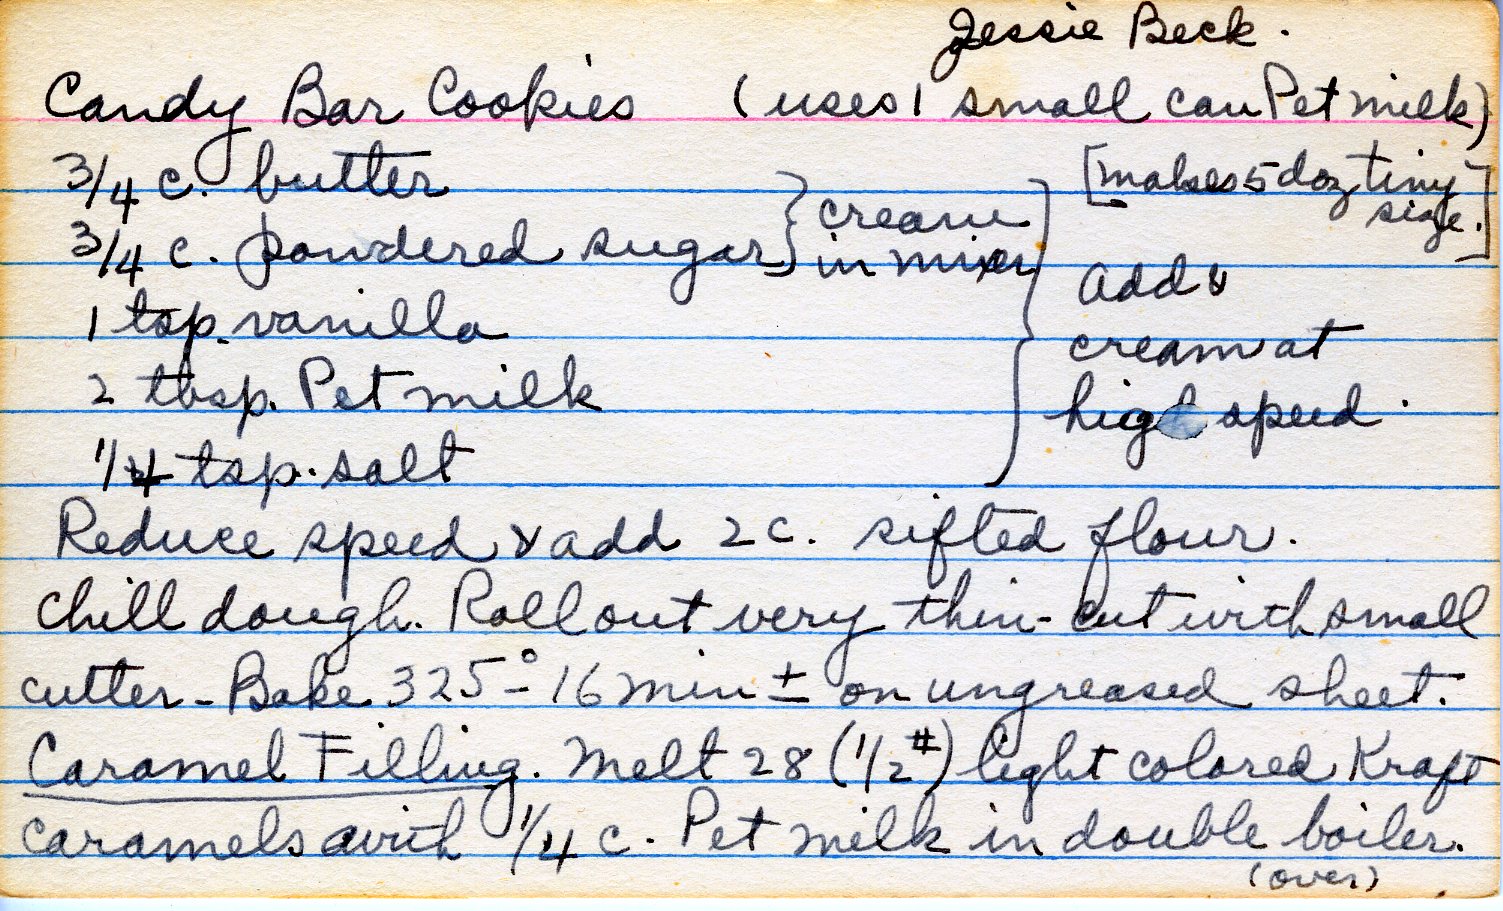 Jessie Beck.
Candy Bar Cookies (uses 1 small can Pet milk)
[makes 5 doz tiny size.]
3/4 c. butter
3/4 c. powdered sugar } cream in mixer
1 tsp. vanilla
2 tbsp. Pet milk
1/4 tsp. salt
} add &
cream at
high speed.
Reduce speed & add 2 c. sifted flour.
Chill dough. Roll out very thin - cut with small
cutter - Bake 325° - 16 min ± on ungreased sheet.
Caramel Filling. Melt 28 (1/2 #) light colored Kraft
caramels with 1/4 c. Pet milk in double boiler.
(over)